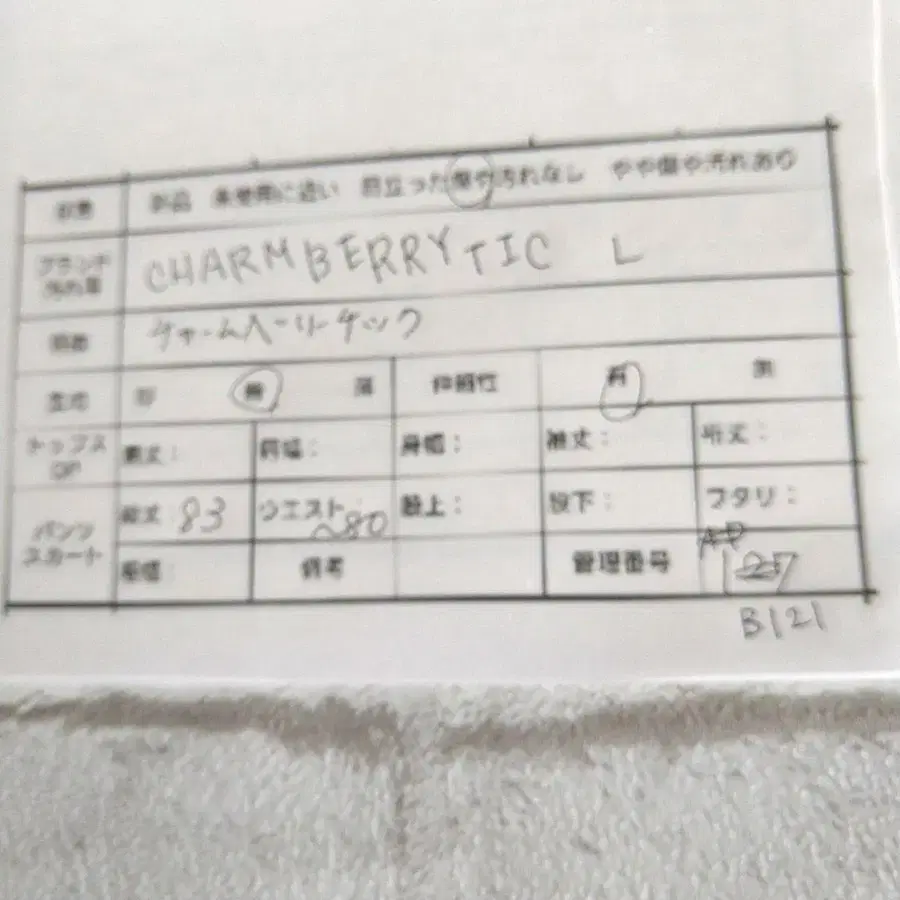 状態 新品 未使用に近い 目立った傷や汚れなし やや傷や汚れあり
ブランド CHARMBERRYTIC L
チャームベーリーチック
生地 厚 普 薄 伸縮性 有 無
トップス OP 着丈: 肩幅: 身幅: 袖丈: 裄丈:
パンツ スカート 総丈: 83 ウエスト: ~80 股上: 股下: ワタリ:
裾幅: 備考 管理番号
B121